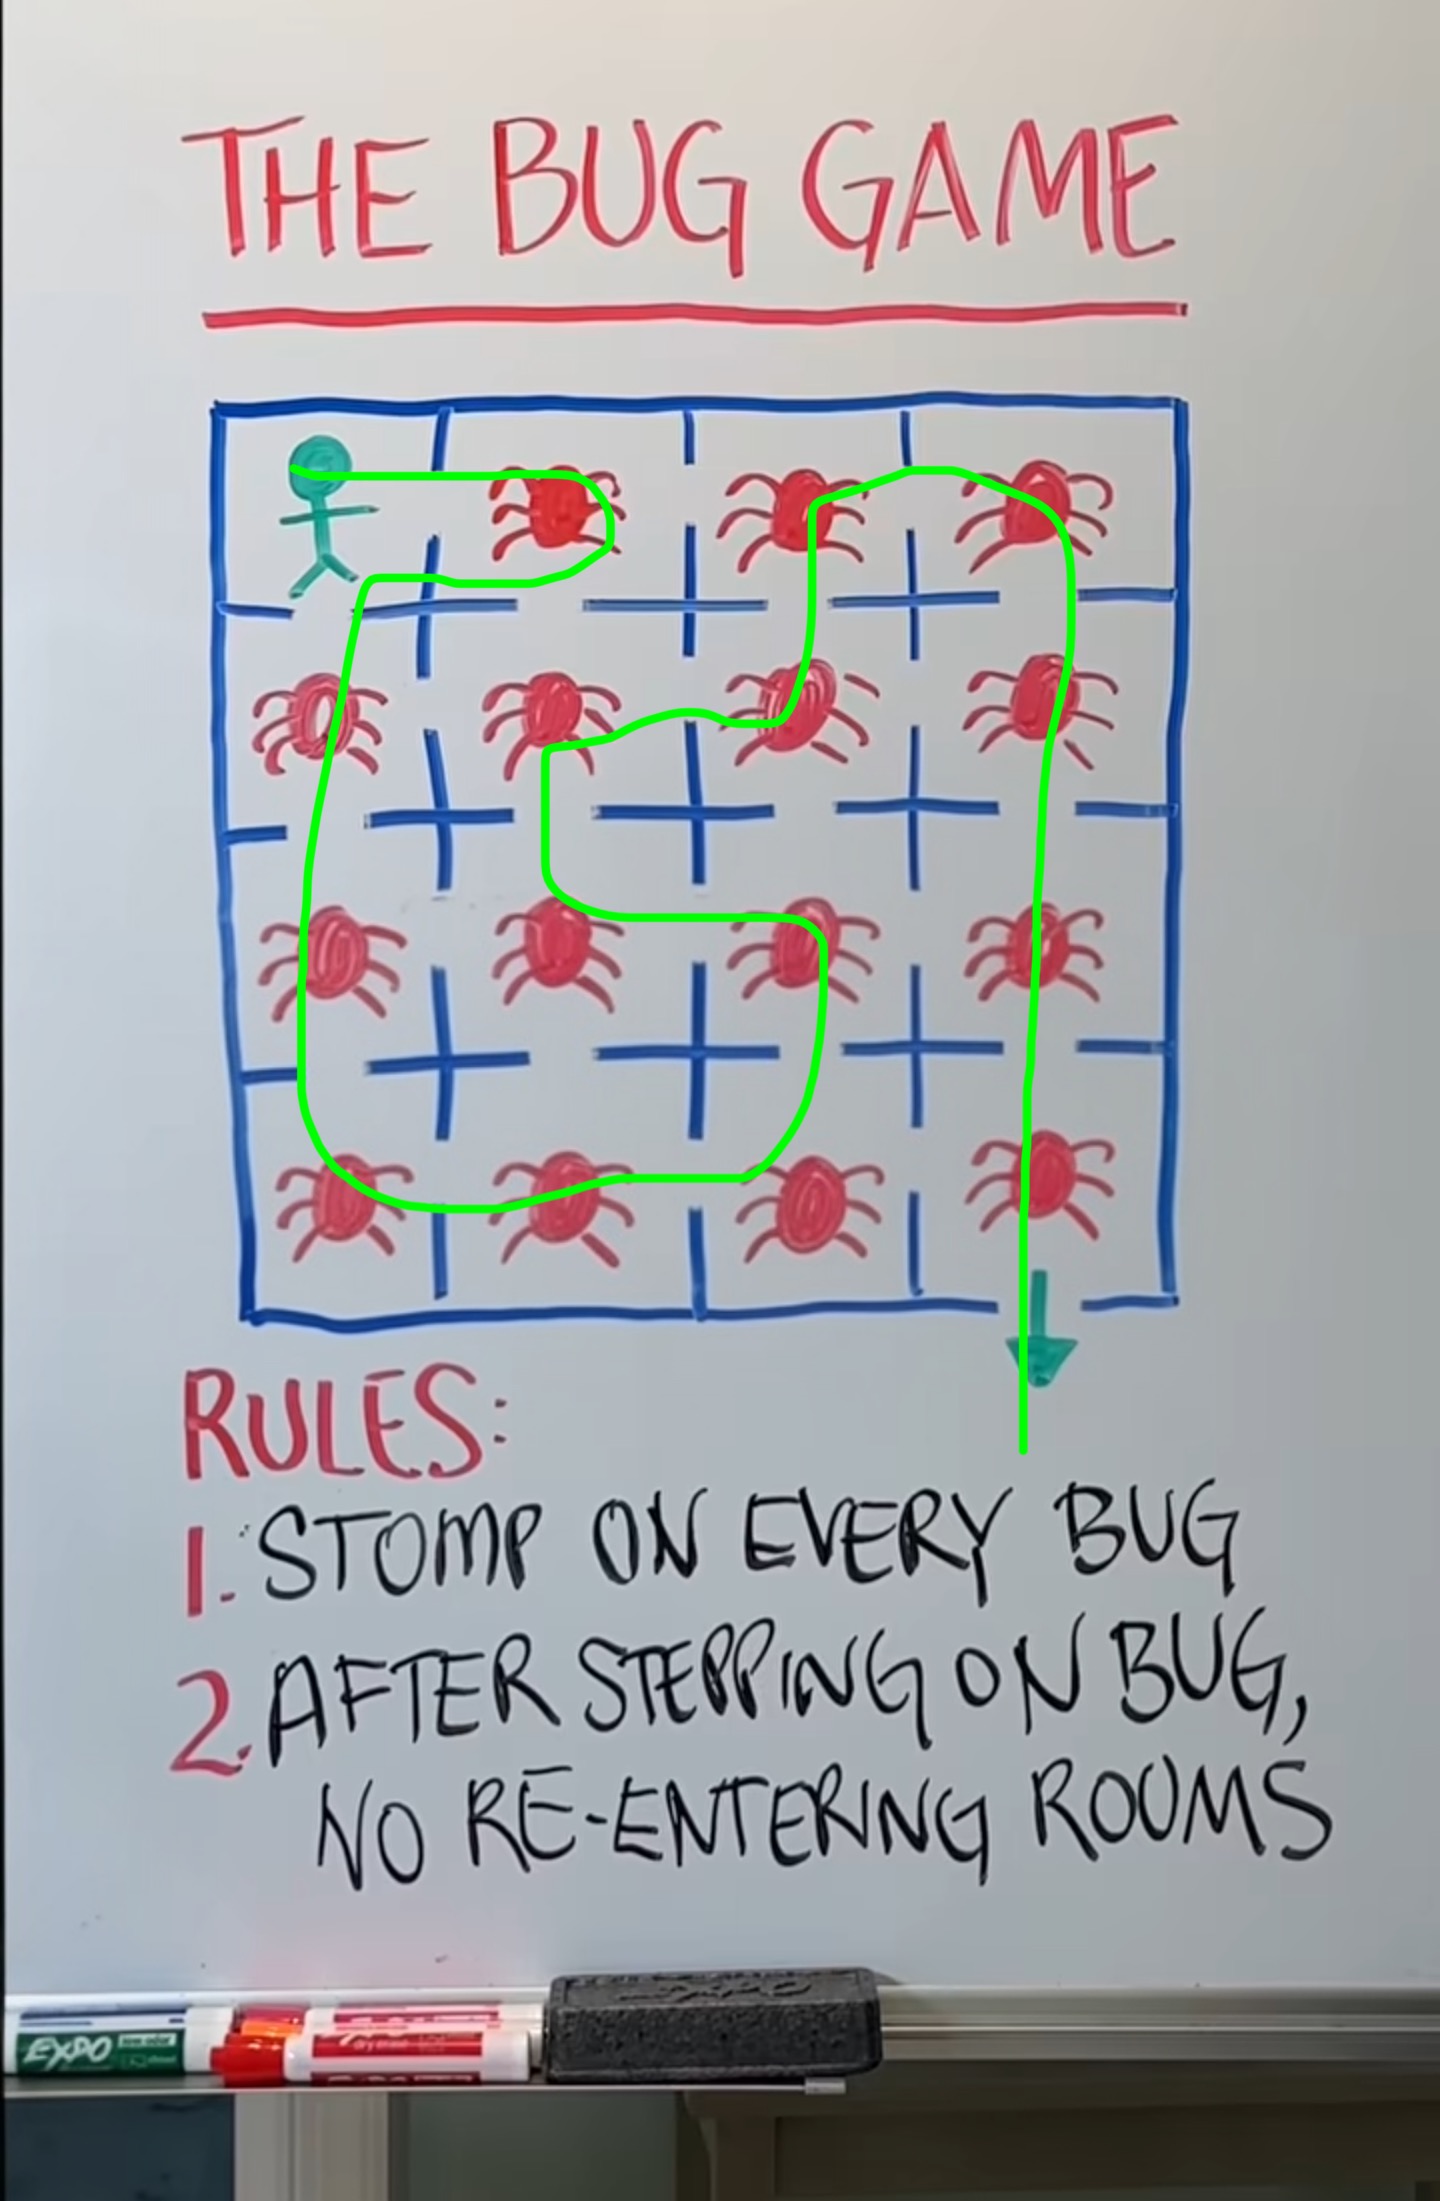 THE BUG GAME
RULES:
1. STOMP ON EVERY BUG
2. AFTER STEPPING ON BUG,
NO RE-ENTERING ROOMS
EXPO
EXPO